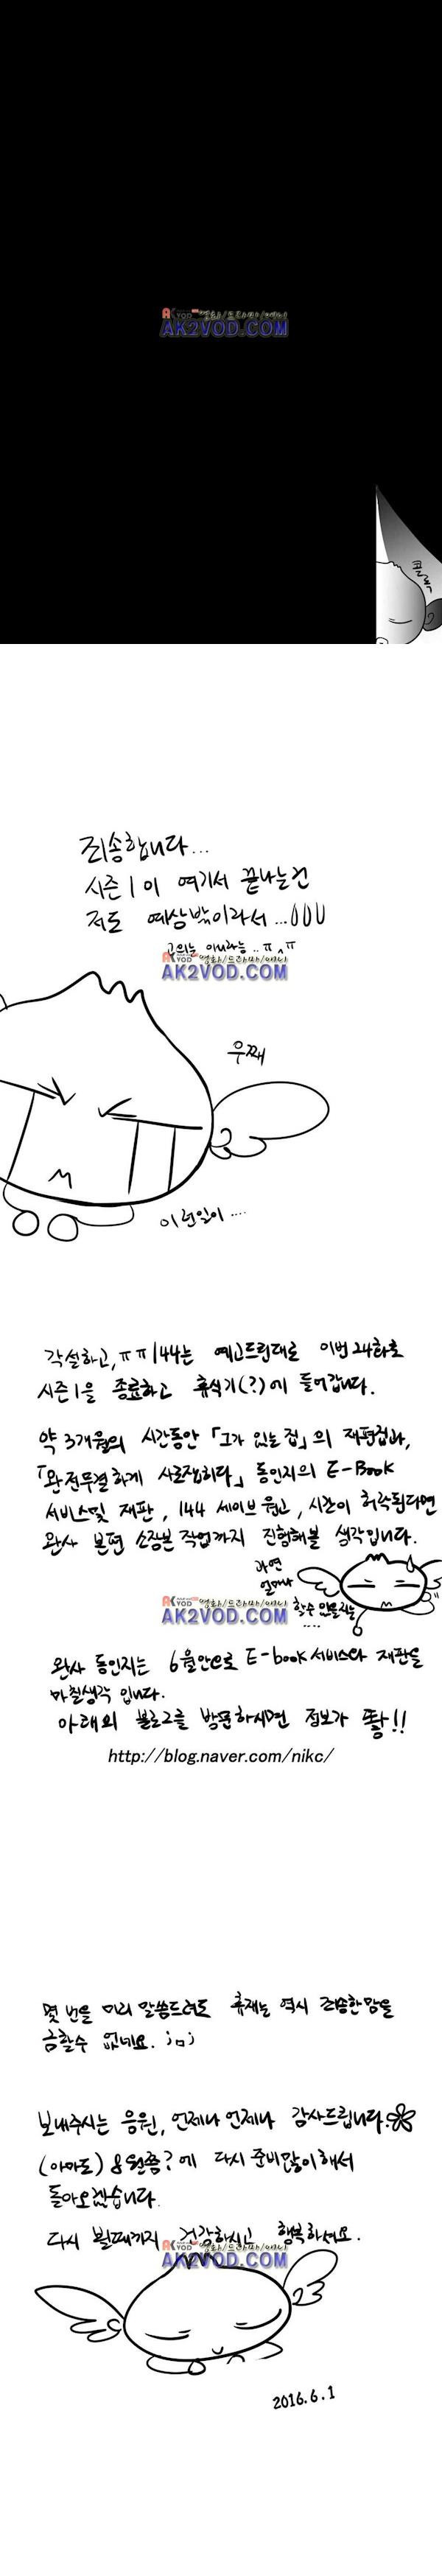 AK2VOD.COM
죄송합니다...
시즌 1이 여기서 끝나는건
저도 예상밖이라서...
고의는 아니라능..ㅠ^ㅠ
AK2VOD.COM
우째
이런일이....
각설하고, ㅠㅠ 144는 예고드린대로 이번 24화로
시즌 1을 종료하고 휴식기(?)에 들어갑니다.
약 3개월의 시간동안 「그가 있는 집」의 재편집과,
「완전무결하게 사로잡히다」 동인지의 E-Book
서비스및 재판, 144 세이브 원고, 시간이 허락된다면
완사 본편 소장본 작업까지 진행해볼 생각입니다.
과연
얼마나
할수 있을지는
....
AK2VOD.COM
완사 동인지는 6월안으로 E-book 서비스와 재판을
마칠생각 입니다.
아래의 블로그를 방문하시면 정보가 뙇!!
http://blog.naver.com/nikc/
몇 번을 미리 말씀드려도 휴재는 역시 죄송한맘을
금할수 없네요. ;ㅁ;
보내주시는 응원, 언제나 언제나 감사드립니다.
(아마도) 8월쯤?에 다시 준비많이해서
돌아오겠습니다.
다시 뵐때까지 건강하시고 행복하세요.
AK2VOD.COM
2016.6.1